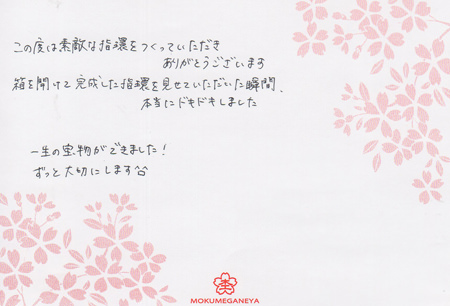 この度は素敵な指環をつくっていただき
ありがとうございます
箱を開けて完成した指環を見せていただいた瞬間、
本当にドキドキしました
一生の宝物ができました!
ずっと大切にします
MOKUMEGANEYA